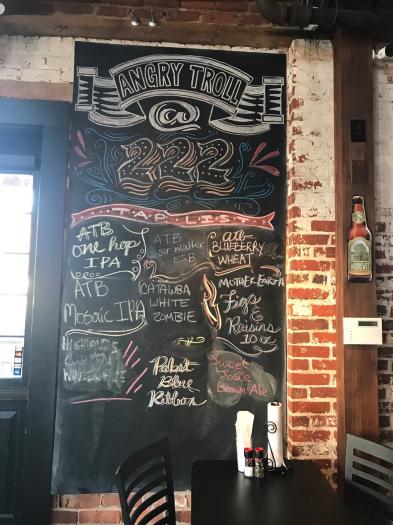 ANGRY TROLL
@
222
TAP LIST
ATB
one hop
IPA
ATB
Sir Walter
ESB
ATB
BLUEBERRY
WHEAT
ATB
Mosaic IPA
CATAWBA
WHITE
ZOMBIE
MOTHER EARTH
Figs
&
Raisins
10 oz
HIGHLANDS
Pabst
Blue
Ribbon
Sweet
Josie
Brown Ale